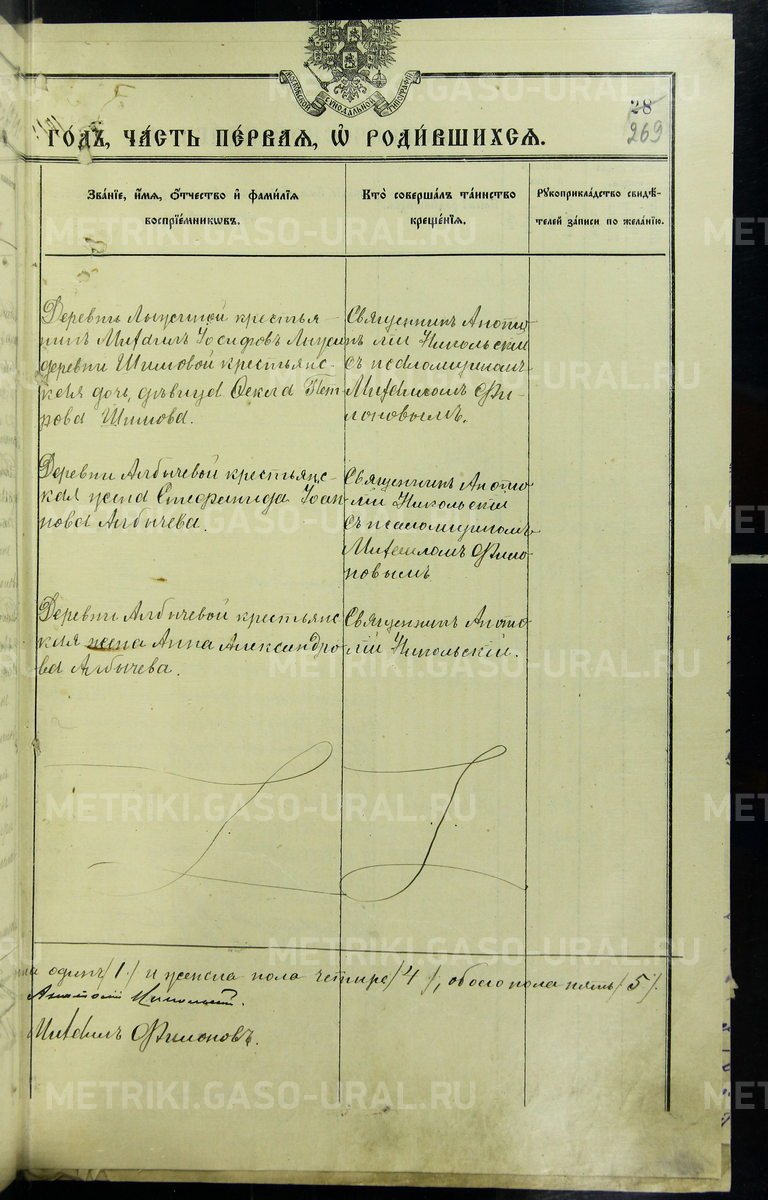 МОСКОВСКОЙ СѴНОДАЛЬНОЙ ТИПОГРАФІИ
28
269
ГОДЪ, ЧАСТЬ ПЕРВАЯ, Ѡ РОДИВШИХСЯ.
Званіе, имя, отчество и фамилія
воспріемниковъ.
Кто совершалъ таинство
крещенія.
Рукоприкладство свидѣ-
телей записи по желанію.
Деревни крестья-
нинъ Михаилъ Іосифовъ
деревни Шиловой крестьянс-
кая дочь, дѣвица Ѳекла Пет-
рова Шилова.
Священникъ Анато-
лій Никольскій
съ псаломщикомъ
Михаиломъ Фи-
лоновымъ.
Деревни Албычевой крестьянс-
кая жена Стефанида Іоан-
нова Албычева.
Священникъ Анато-
лій Никольскій
съ псаломщикомъ
Михаиломъ Фило-
новымъ
Деревни Албычевой крестьянс-
кая жена Анна Александро-
ва Албычева.
Священникъ Анато-
лій Никольскій.
одинъ /1/ и женска пола четыре /4/, обоего пола пять /5/.
Анатолій Никольскій.
Михаилъ Филоновъ.
METRIKI.GASO-URAL.RU